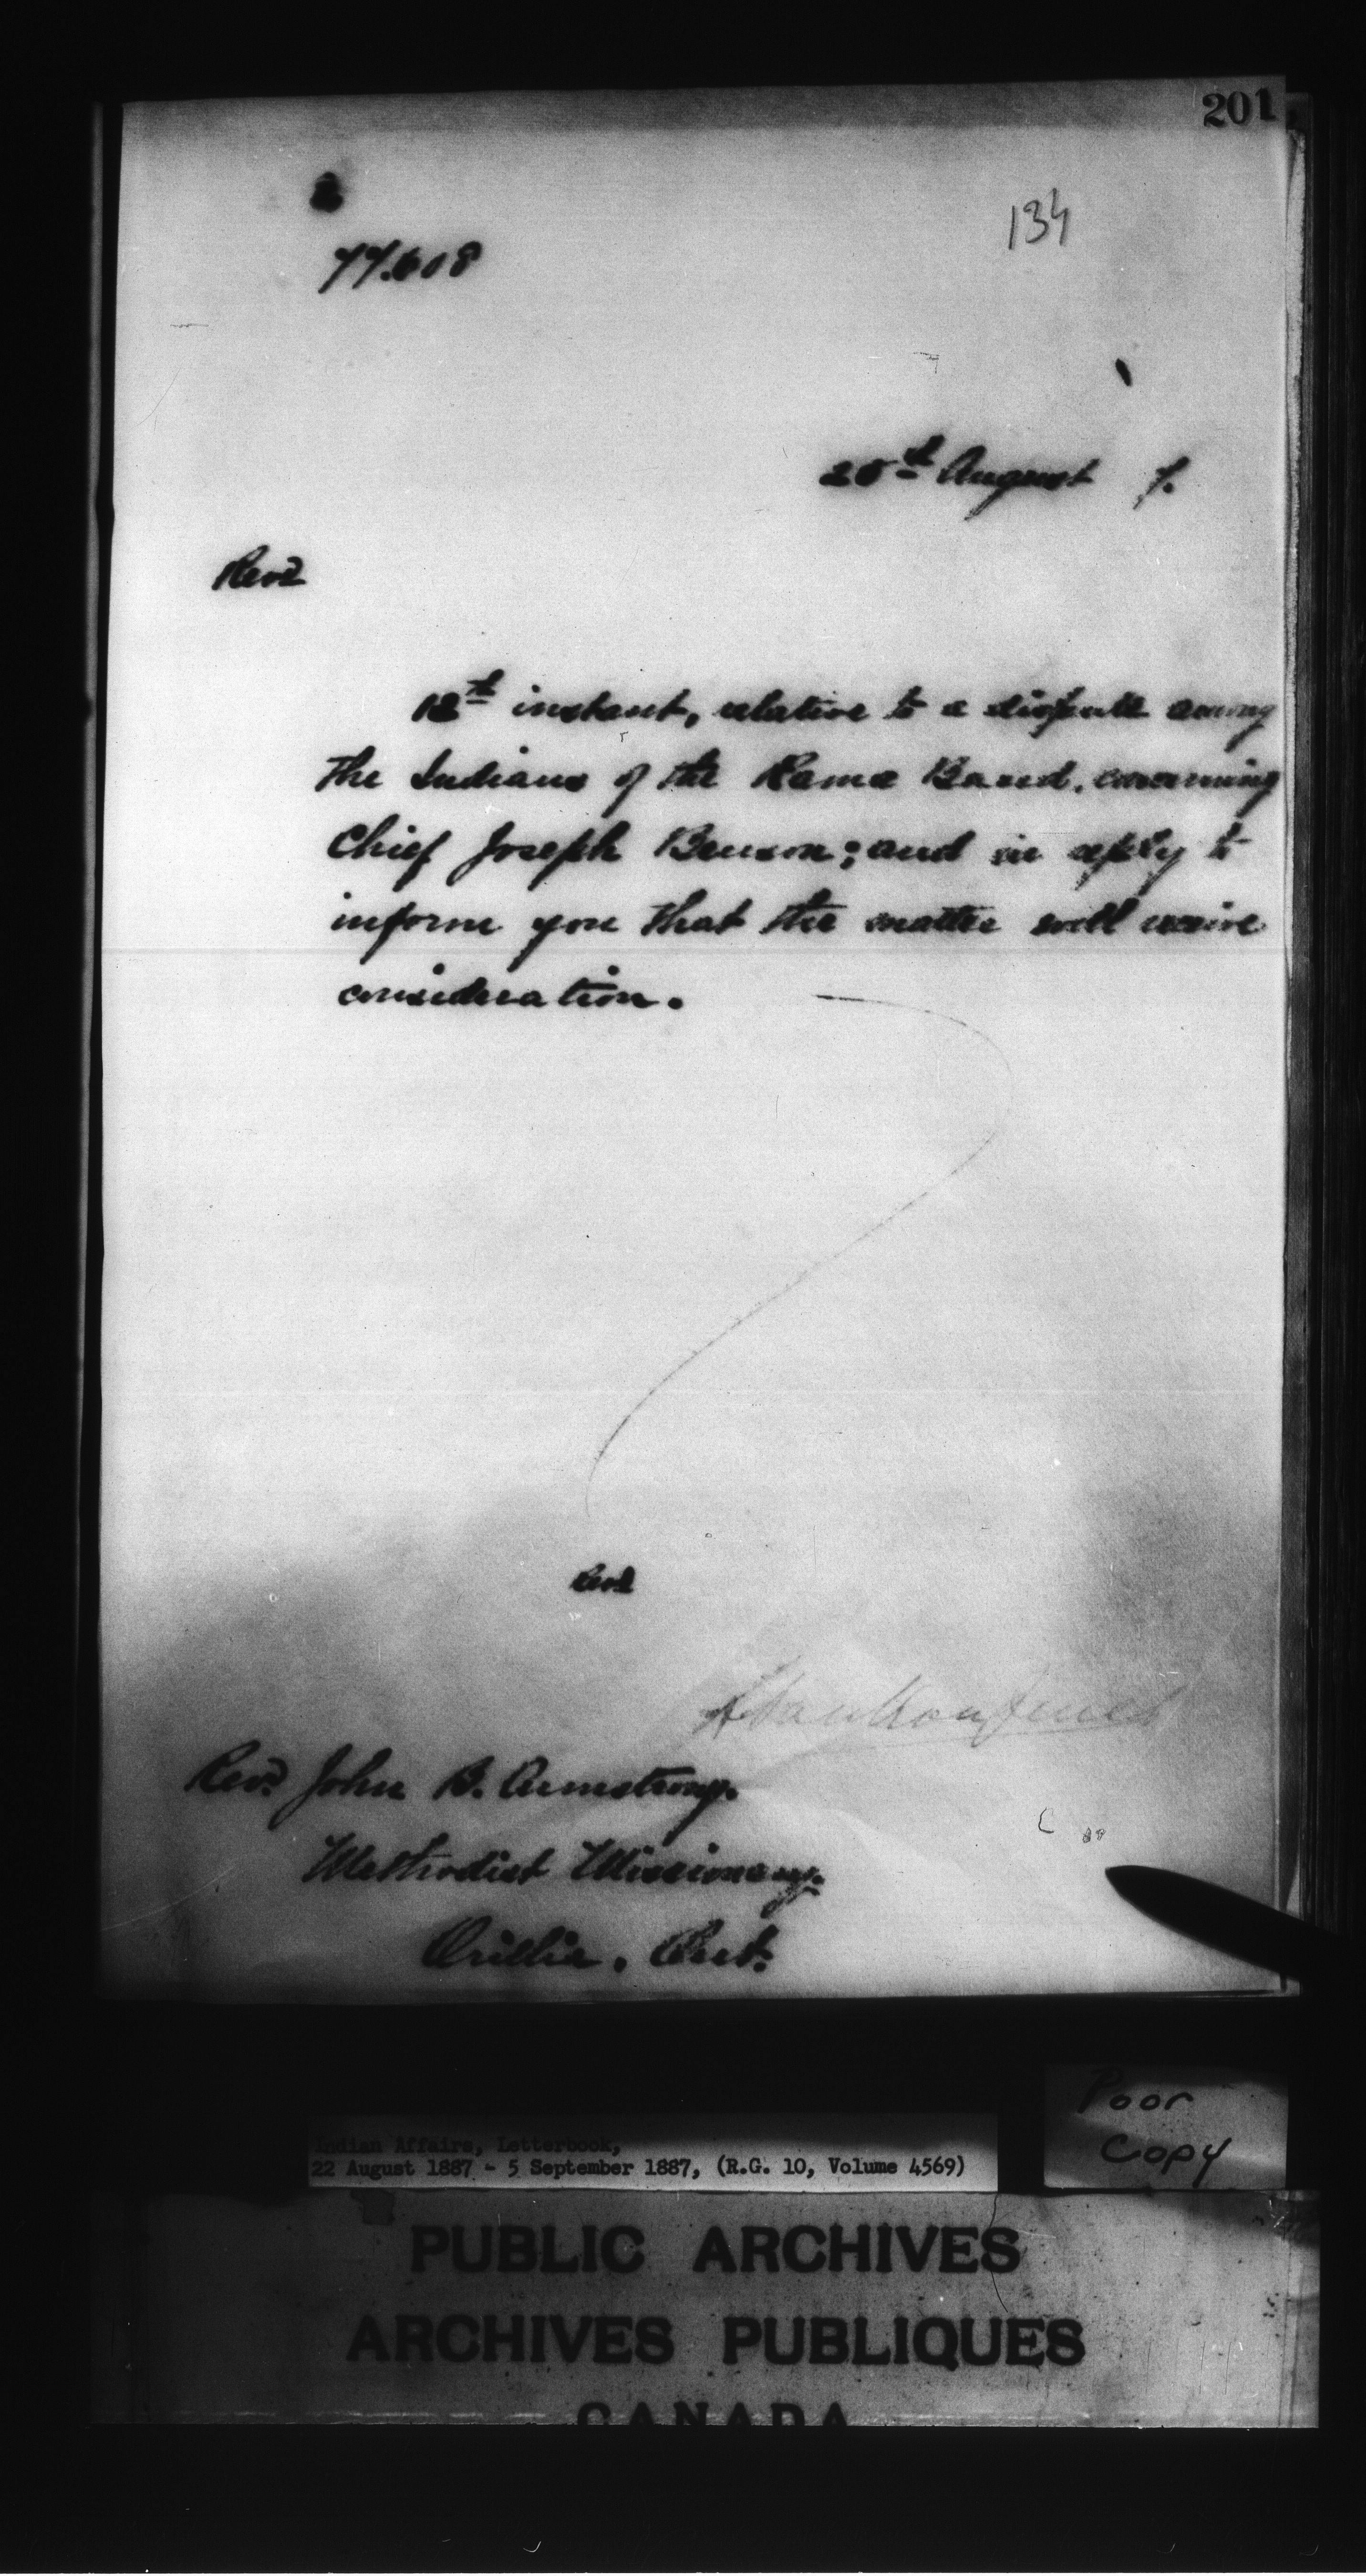 201
134
77.608
25th August 7.
Revd
18th instant, relative to a dispute among
the Indians of the Rama Band, concerning
Chief Joseph Benson; and in reply to
inform you that the matter will receive
consideration.
Revd
Revd John B. Armstrong.
Methodist Missionary.
Orillia, Ont.
Poor
Copy
Indian Affairs, Letterbook,
22 August 1887 - 5 September 1887, (R.G. 10, Volume 4569)
PUBLIC ARCHIVES
ARCHIVES PUBLIQUES
CANADA